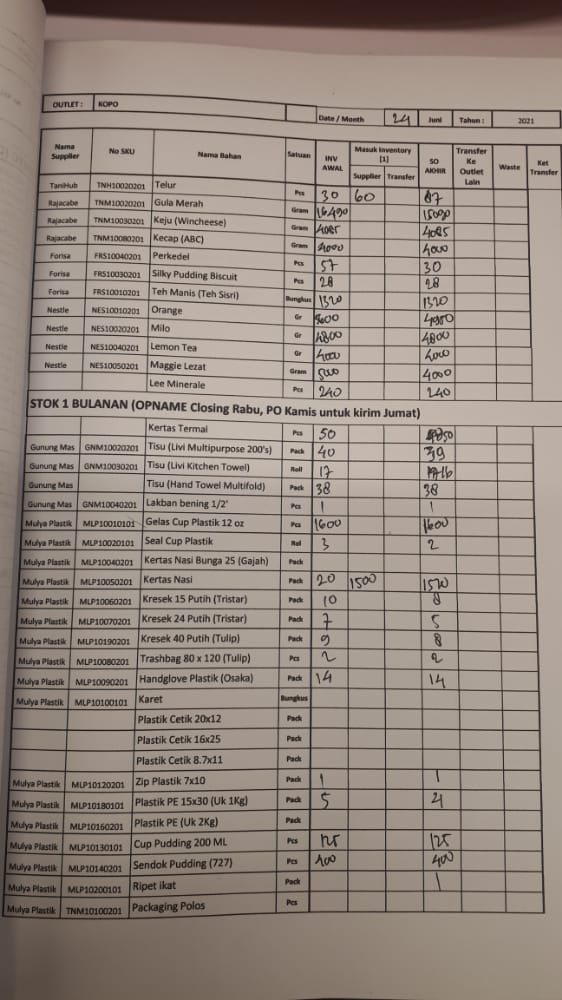 OUTLET : KOPO
Date / Month 24 Juni Tahun : 2021
Nama Supplier No SKU Nama Bahan Satuan INV AWAL Masuk Inventory [1] Supplier Transfer SO AKHIR Transfer Ke Outlet Lain Waste Ket Transfer
TaniHub TNH10020201 Telur Pcs 30 60 87
Rajacabe TNM10020201 Gula Merah Gram 16490 15090
Rajacabe TNM10030201 Keju (Wincheese) Gram 4085 4085
Rajacabe TNM10080201 Kecap (ABC) Gram 4000 4000
Forisa FRS10040201 Perkedel Pcs 57 30
Forisa FRS10030201 Silky Pudding Biscuit Pcs 28 28
Forisa FRS10010201 Teh Manis (Teh Sisri) Bungkus 1320 1320
Nestle NES10010201 Orange Gr
Nestle NES10020201 Milo Gr 4800 4800
Nestle NES10040201 Lemon Tea Gr 4000 4000
Nestle NES10050201 Maggie Lezat Gram 4000
Lee Minerale Pcs 240 240
STOK 1 BULANAN (OPNAME Closing Rabu, PO Kamis untuk kirim Jumat)
Kertas Termal Pcs 50 50
Gunung Mas GNM10020201 Tisu (Livi Multipurpose 200's) Pack 40 39
Gunung Mas GNM10030201 Tisu (Livi Kitchen Towel) Roll 17 16
Gunung Mas Tisu (Hand Towel Multifold) Pack 38 38
Gunung Mas GNM10040201 Lakban bening 1/2' Pcs 1 1
Mulya Plastik MLP10010101 Gelas Cup Plastik 12 oz Pcs 1600 1600
Mulya Plastik MLP10020101 Seal Cup Plastik Rol 3 2
MLP10040201 Kertas Nasi Bunga 25 (Gajah) Pack
Mulya Plastik MLP10050201 Kertas Nasi Pack 20 1500 1520
Mulya Plastik MLP10060201 Kresek 15 Putih (Tristar) Pack 10 8
Mulya Plastik MLP10070201 Kresek 24 Putih (Tristar) Pack 7 5
Mulya Plastik MLP10190201 Kresek 40 Putih (Tulip) Pack 9 8
Mulya Plastik MLP10080201 Trashbag 80 x 120 (Tulip) Pcs 2 2
Mulya Plastik MLP10090201 Handglove Plastik (Osaka) Pack 14 14
Mulya Plastik MLP10100101 Karet Bungkus
Plastik Cetik 20x12 Pack
Plastik Cetik 16x25 Pack
Plastik Cetik 8.7x11 Pack
Mulya Plastik MLP10120201 Zip Plastik 7x10 Pack 1 1
Mulya Plastik MLP10180101 Plastik PE 15x30 (Uk 1Kg) Pack 5 4
Mulya Plastik MLP10160201 Plastik PE (Uk 2Kg) Pack
Mulya Plastik MLP10130101 Cup Pudding 200 ML Pcs 125 125
Mulya Plastik MLP10140201 Sendok Pudding (727) Pcs 400 400
Mulya Plastik MLP10200101 Ripet ikat Pack 1
Mulya Plastik TNM10100201 Packaging Polos Pcs